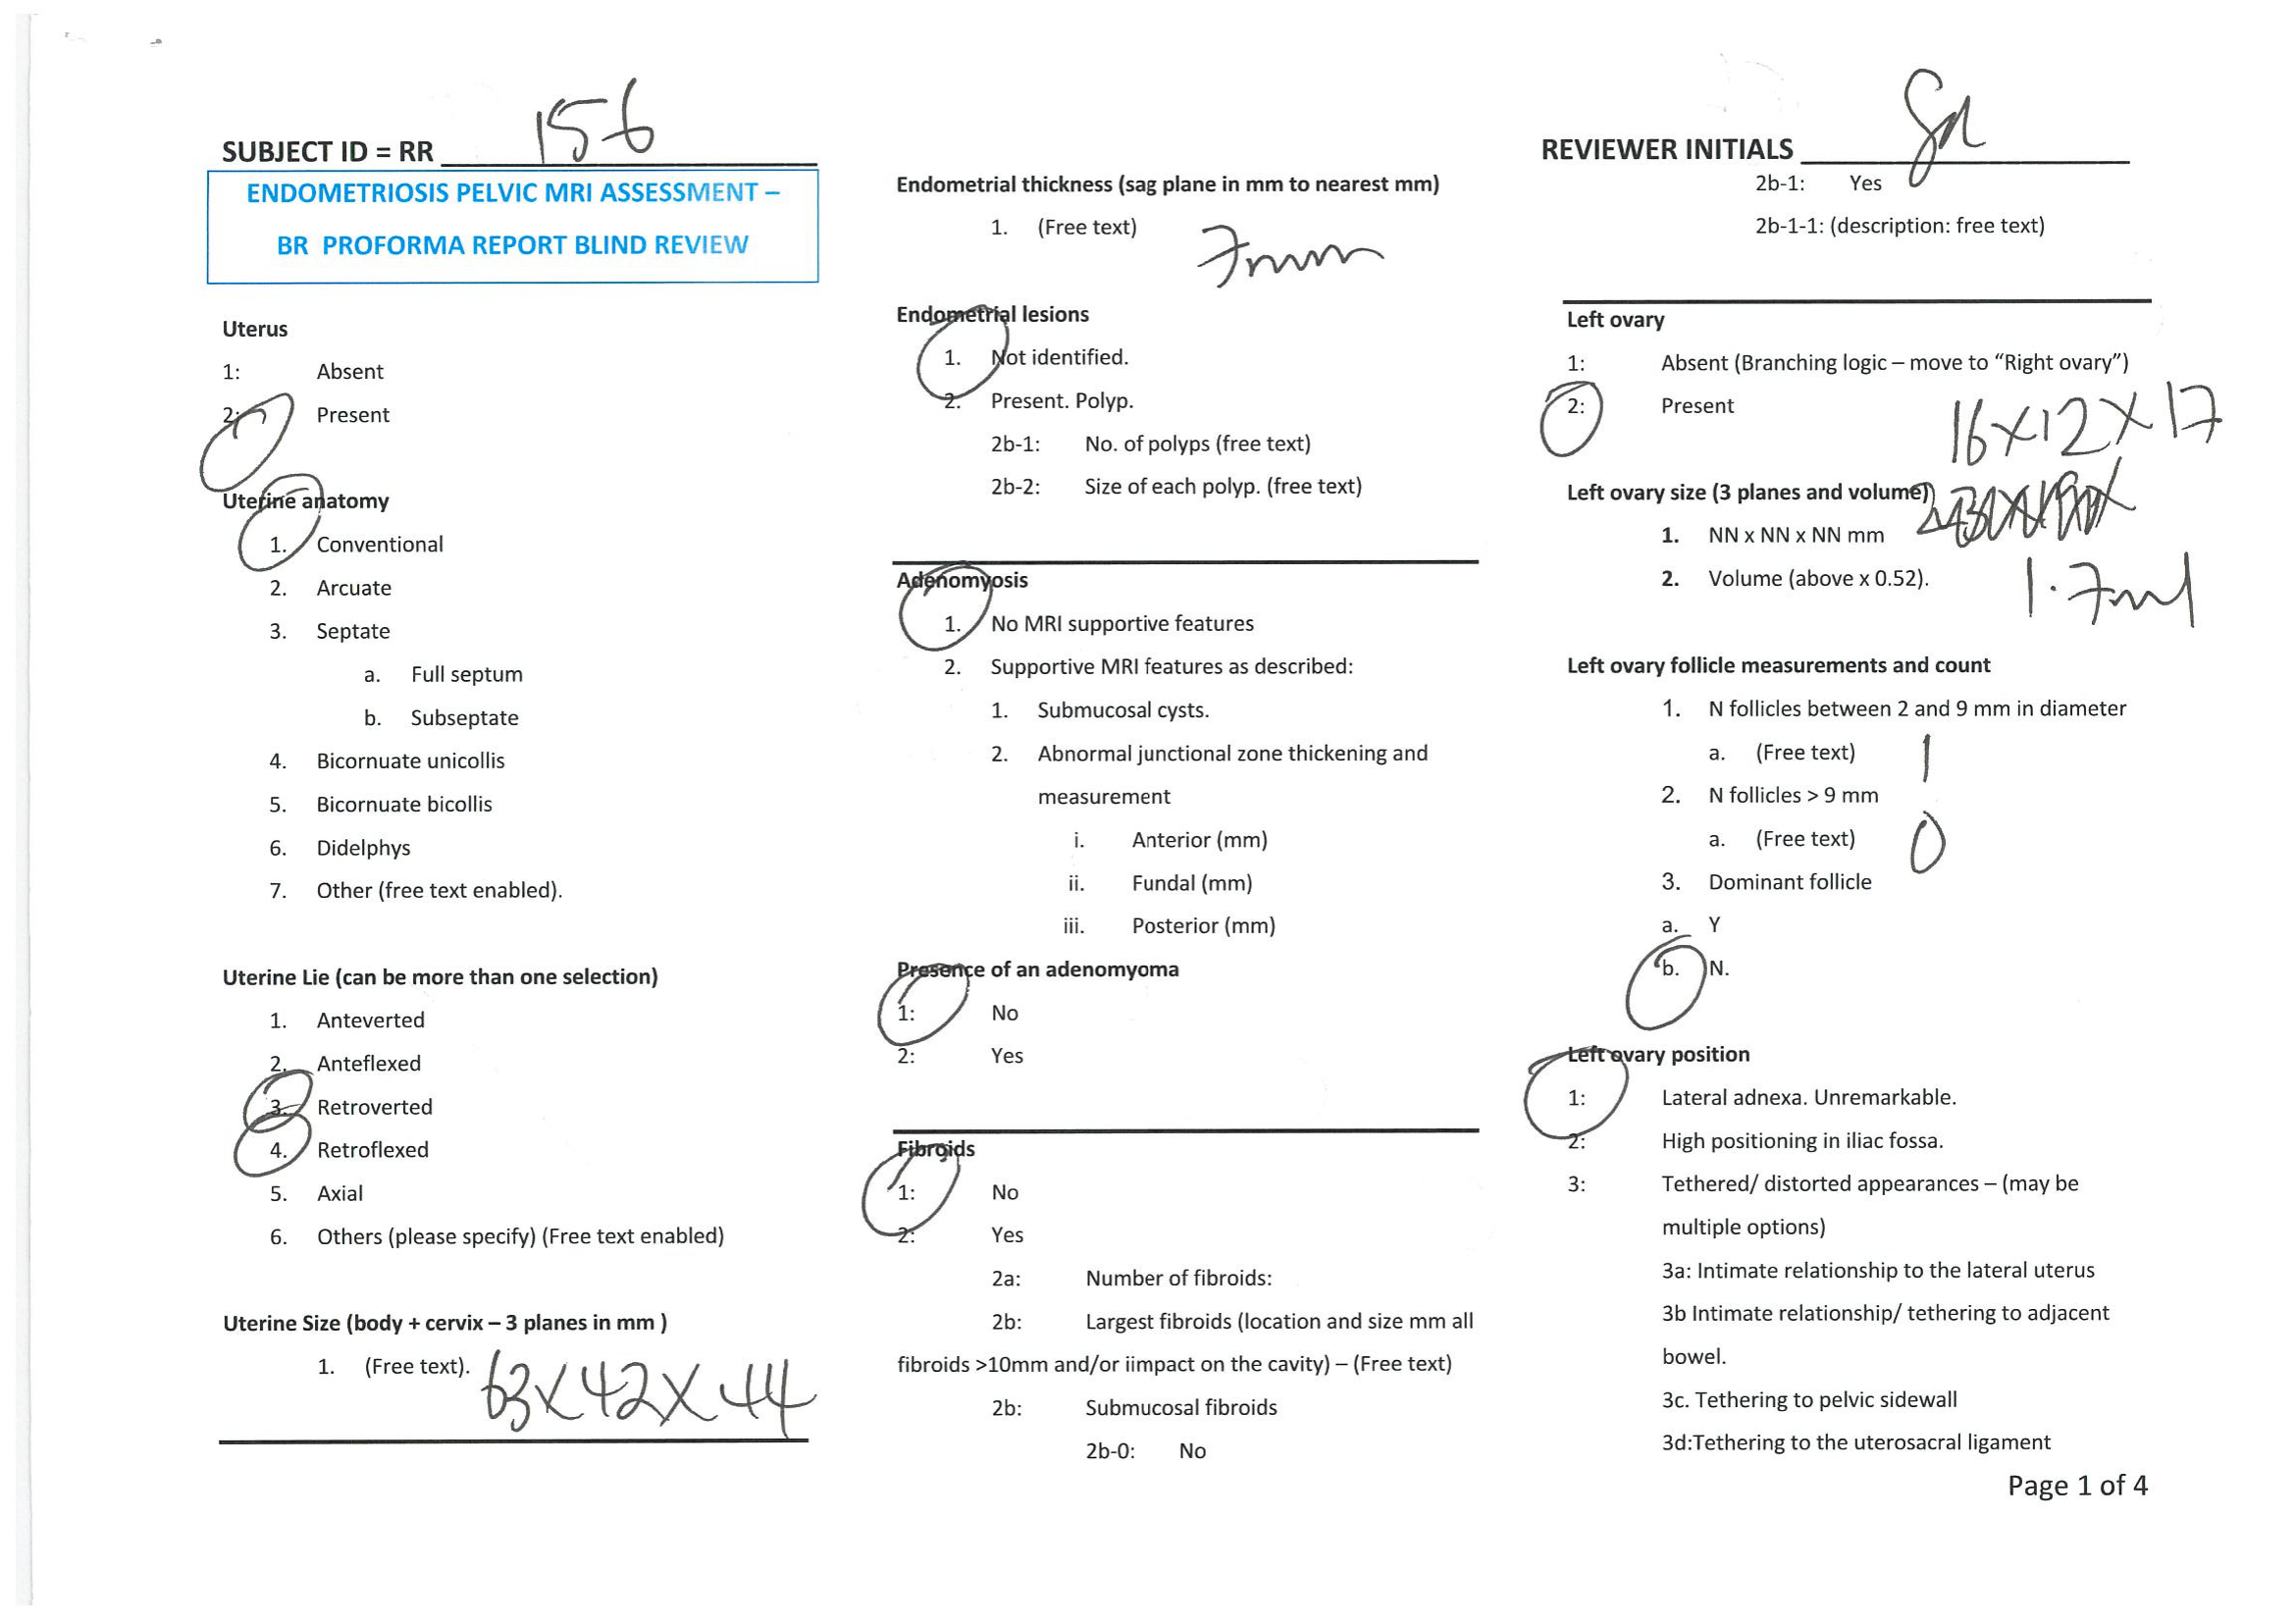 SUBJECT ID = RR 156
ENDOMETRIOSIS PELVIC MRI ASSESSMENT –
BR PROFORMA REPORT BLIND REVIEW
Uterus
1: Absent
2: Present
Uterine anatomy
1. Conventional
2. Arcuate
3. Septate
a. Full septum
b. Subseptate
4. Bicornuate unicollis
5. Bicornuate bicollis
6. Didelphys
7. Other (free text enabled).
Uterine Lie (can be more than one selection)
1. Anteverted
2. Anteflexed
3. Retroverted
4. Retroflexed
5. Axial
6. Others (please specify) (Free text enabled)
Uterine Size (body + cervix – 3 planes in mm )
1. (Free text). 63x42x44
Endometrial thickness (sag plane in mm to nearest mm)
1. (Free text) 7mm
Endometrial lesions
1. Not identified.
2. Present. Polyp.
2b-1: No. of polyps (free text)
2b-2: Size of each polyp. (free text)
Adenomyosis
1. No MRI supportive features
2. Supportive MRI features as described:
1. Submucosal cysts.
2. Abnormal junctional zone thickening and
measurement
i. Anterior (mm)
ii. Fundal (mm)
iii. Posterior (mm)
Presence of an adenomyoma
1: No
2: Yes
Fibroids
1: No
2: Yes
2a: Number of fibroids:
2b: Largest fibroids (location and size mm all
fibroids >10mm and/or iimpact on the cavity) – (Free text)
2b: Submucosal fibroids
2b-0: No
REVIEWER INITIALS
2b-1: Yes
2b-1-1: (description: free text)
Left ovary
1: Absent (Branching logic – move to “Right ovary”)
2: Present
16x12x17
Left ovary size (3 planes and volume)
1. NN x NN x NN mm
2. Volume (above x 0.52). 1.7ml
Left ovary follicle measurements and count
1. N follicles between 2 and 9 mm in diameter
a. (Free text) 1
2. N follicles > 9 mm
a. (Free text) 0
3. Dominant follicle
a. Y
b. N.
Left ovary position
1: Lateral adnexa. Unremarkable.
2: High positioning in iliac fossa.
3: Tethered/ distorted appearances – (may be
multiple options)
3a: Intimate relationship to the lateral uterus
3b Intimate relationship/ tethering to adjacent
bowel.
3c. Tethering to pelvic sidewall
3d:Tethering to the uterosacral ligament
Page 1 of 4